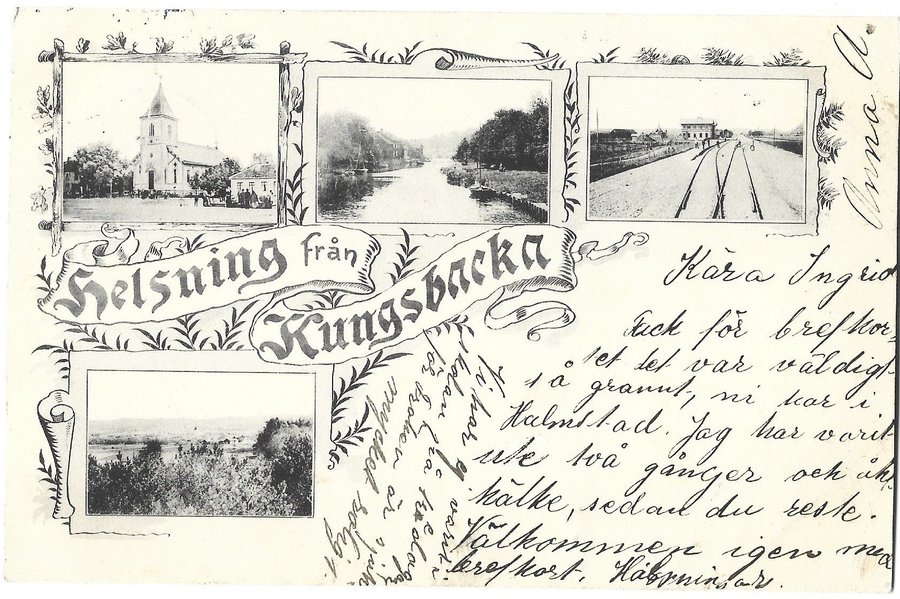 Helsning från
Kungsbacka
Anna A.
Kära Ingrid
Tack för brefkor-
tet det var väldigt
så grannt, ni har i
Halmstad. Jag har varit
ute två gånger och åkt
kälke, sedan du reste.
Välkommen igen med
brefkort.
Vi har ej varit i
skolan
för
mycket rolig